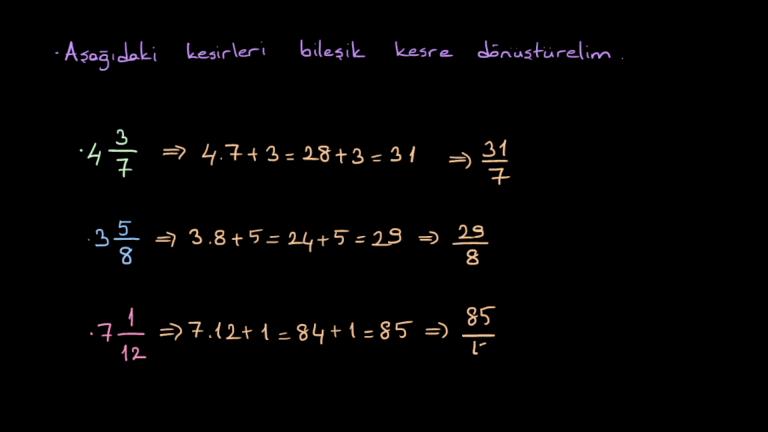 · Aşağıdaki kesirleri bileşik kesre dönüştürelim.
· 4 3/7 ⇒ 4.7+3=28+3=31 ⇒ 31/7
· 3 5/8 ⇒ 3.8+5=24+5=29 ⇒ 29/8
· 7 1/12 ⇒ 7.12+1=84+1=85 ⇒ 85/